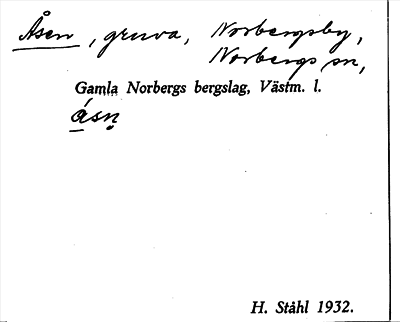 Åsen, gruva, Norbergsby,
Norbergs sn,
Gamla Norbergs bergslag, Västm. l.
ásn̥
H. Ståhl 1932.